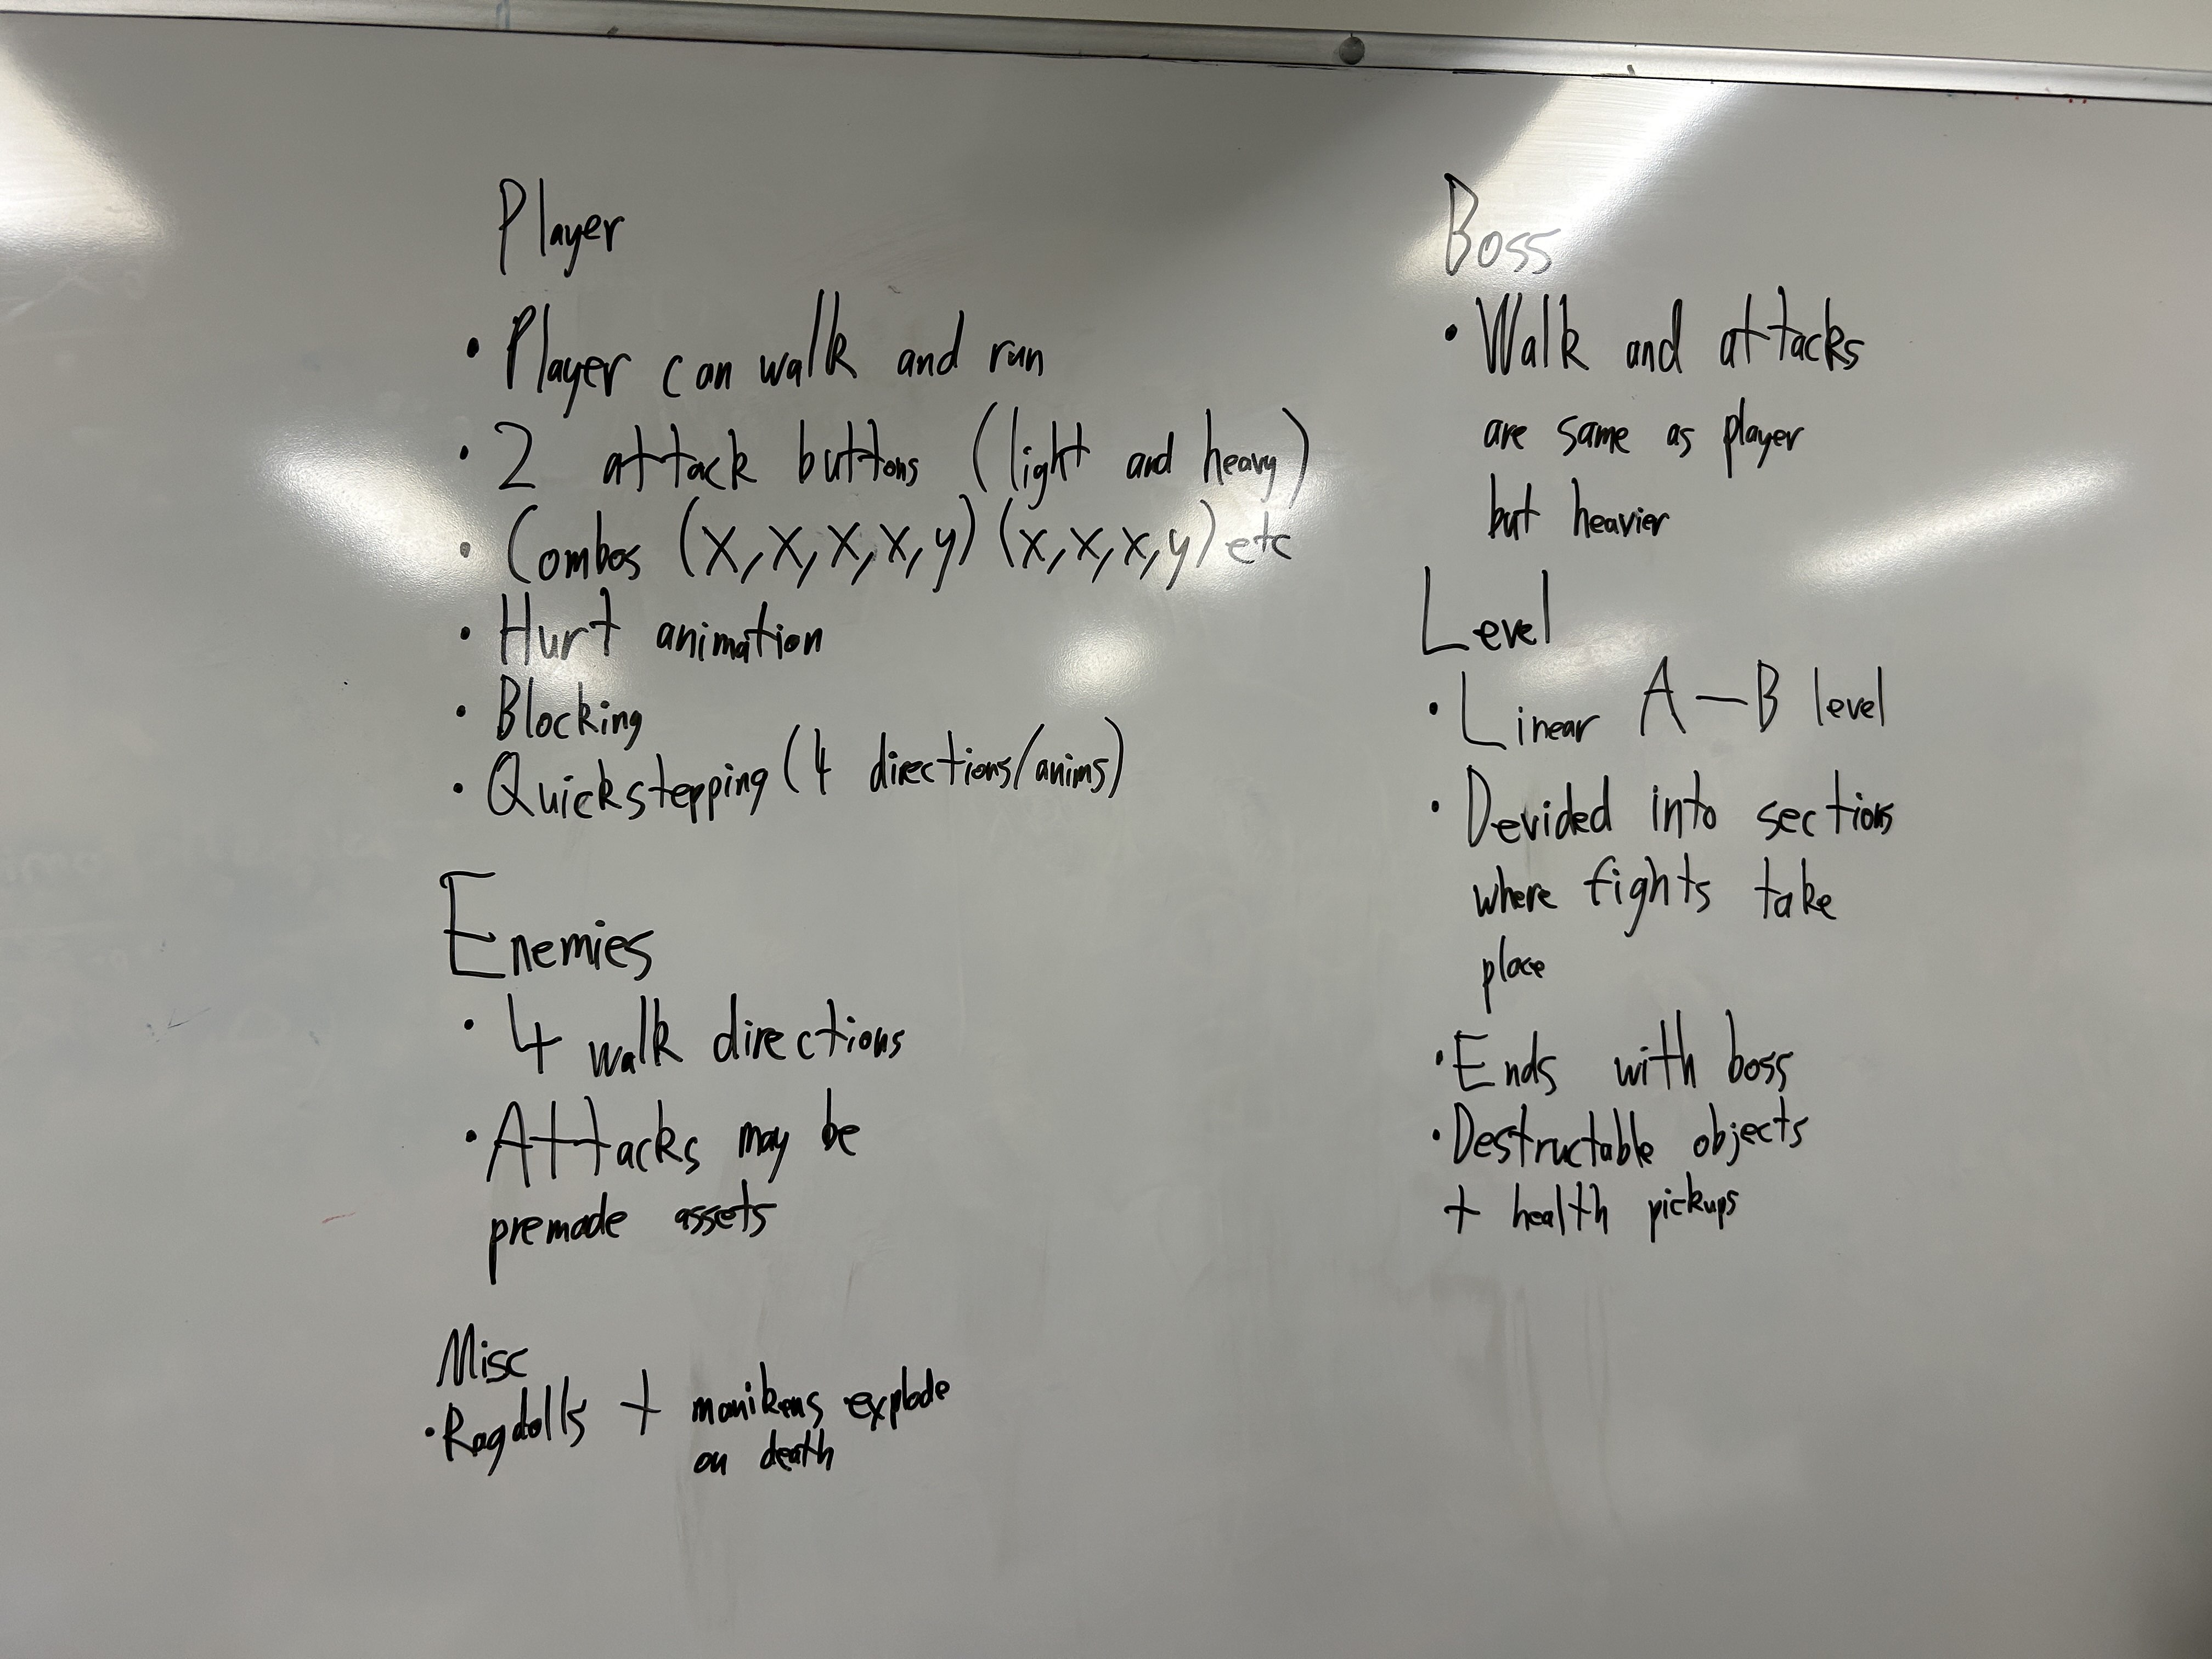 Player
• Player can walk and run
• 2 attack buttons (light and heavy)
• Combos (x,x,x,x,y) (x,x,x,y) etc
• Hurt animation
• Blocking
• Quickstepping (4 directions/anims)
Enemies
• 4 walk directions
• Attacks may be
premade assets
Misc
• Ragdolls + manikens explode
on death
Boss
• Walk and attacks
are same as player
but heavier
Level
• Linear A-B level
• Devided into sections
where fights take
place
• Ends with boss
• Destructable objects
+ health pickups